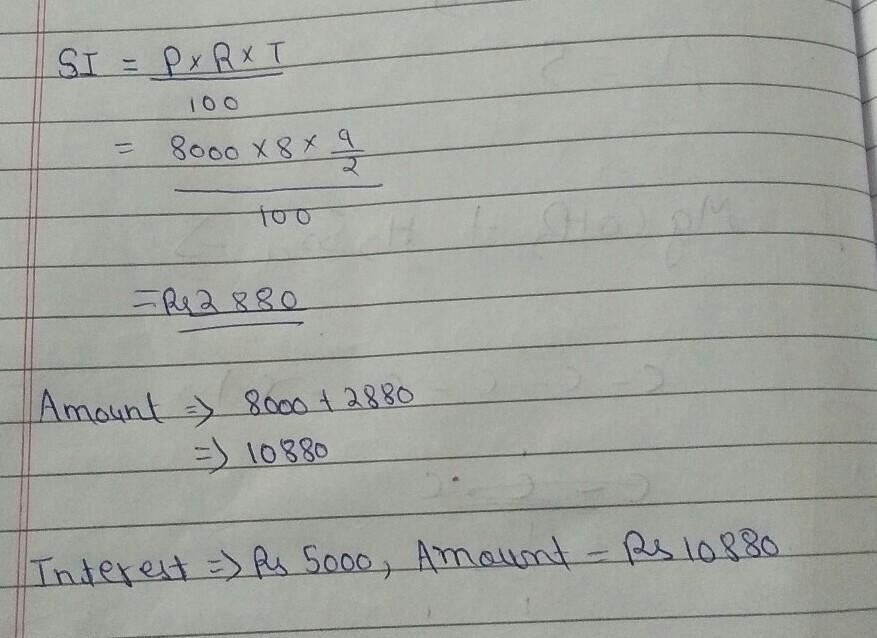 SI = P x R x T
100
= 8000 x 8 x 9/2
100
= Rs 2880
Amount => 8000 + 2880
=> 10880
Interest => Rs 5000, Amount = Rs 10880